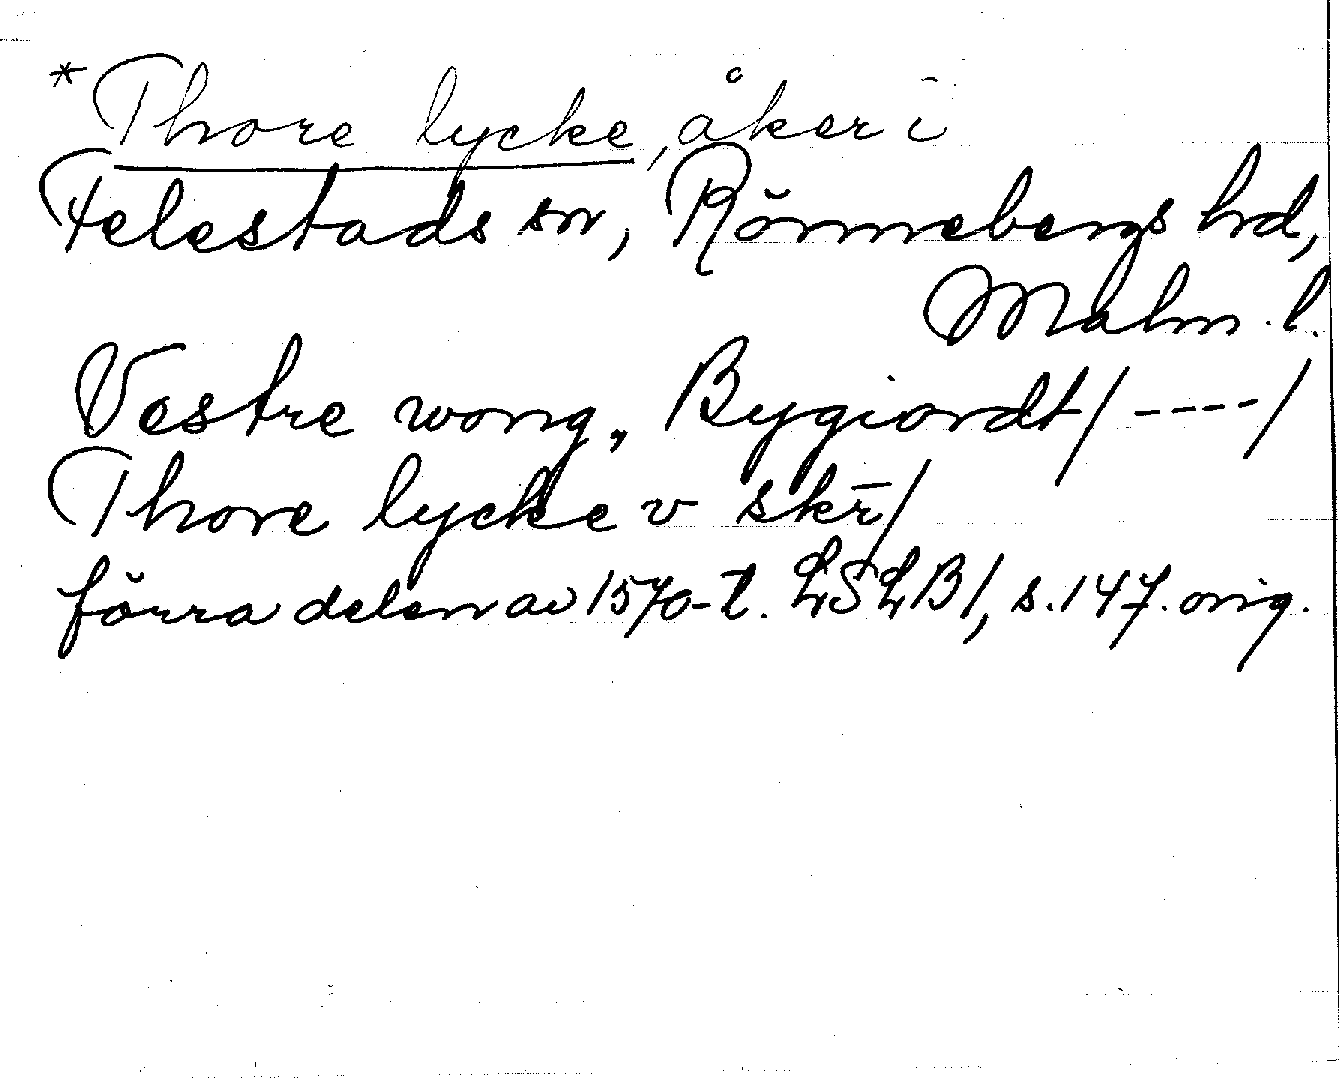 *Thore lycke, åker i
Felestads sn, Rönnebergs hrd,
Malm. l.
Vestre wong, Bygiordt/----/
Thore lycke v skr̄/
förra delen av 1570-t. LSLB/, s.147. orig.